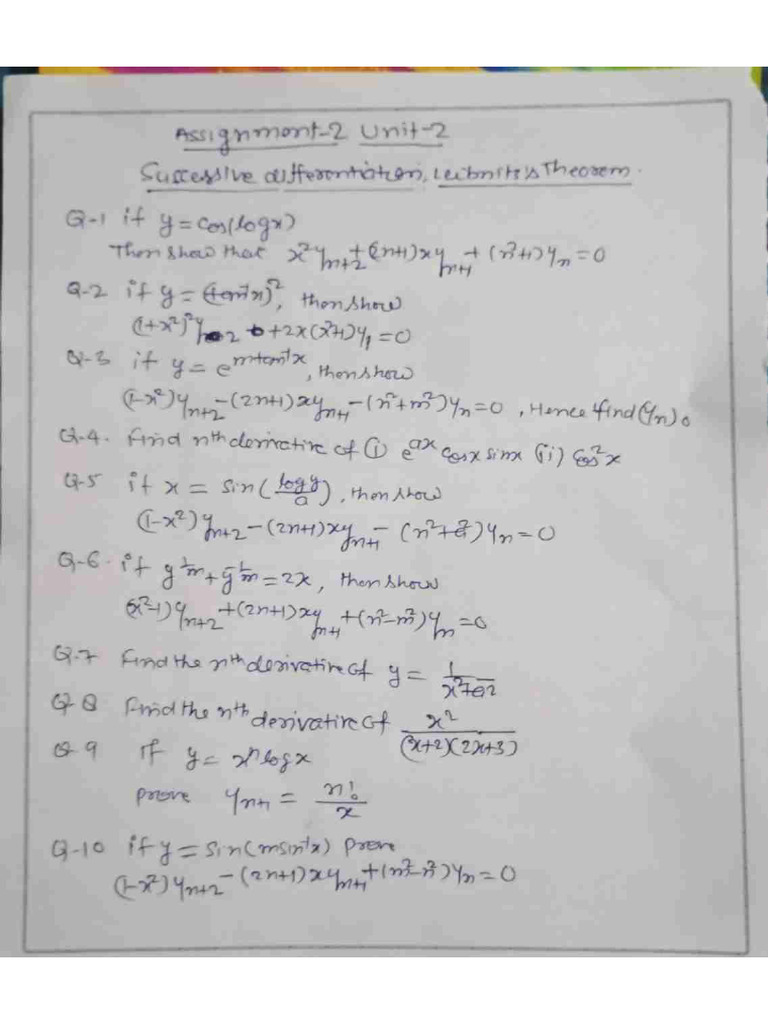 Assignment-2 Unit-2
Successive differentiation, Leibnitz's Theorem.
Q-1 if y = cos(logx)
Then show that x²yₙ₊₂ + (2n+1)xyₙ₊₁ + (n²+1)yₙ = 0
Q-2 if y = (tan⁻¹x)², then show
(1+x²)²y₂ + 2x(x²+1)y₁ = 0
Q-3 if y = e^(m tan⁻¹x), then show
(1-x²)yₙ₊₂ - (2n+1)xyₙ₊₁ - (n²+m²)yₙ = 0, Hence find (yₙ)₀
Q-4. Find nth derivative of (i) e^(ax) cosx sinx (ii) cos²x
Q-5 if x = sin(logy/a), then show
(1-x²)yₙ₊₂ - (2n+1)xyₙ₊₁ - (n²+a²)yₙ = 0
Q-6. if y^(1/m) + y^(-1/m) = 2x, then show
(x²-1)yₙ₊₂ + (2n+1)xyₙ₊₁ + (n²-m²)yₙ = 0
Q-7 Find the nth derivative of y = 1/(x²+a²)
Q 8 Find the nth derivative of x²/((x+2)(2x+3))
Q 9 If y = xⁿlogx
prove yₙ₊₁ = n!/x
Q-10 if y = sin(msin⁻¹x) prove
(1-x²)yₙ₊₂ - (2n+1)xyₙ₊₁ + (m²-n²)yₙ = 0